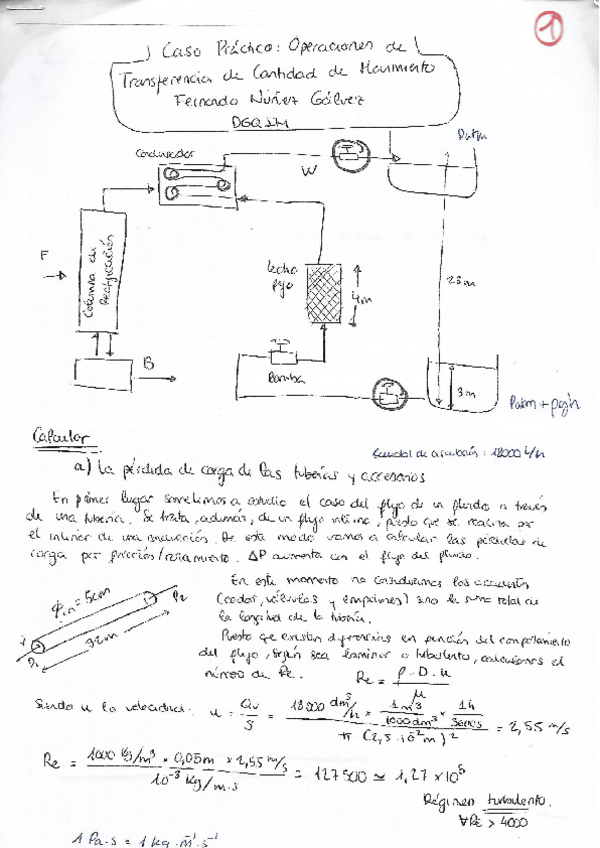 1
Caso Práctico: Operaciones de
Transferencia de Cantidad de Movimiento
Fernando Núñez Gálvez
DGQIM
Condensador
W
Patm
F
Columna de
Rectificación
Lecho
fijo
4m
23m
B
Bomba
3m
Patm + ρgh
Calcular
Caudal de circulación: 18000 L/h
a) La pérdida de carga de las tuberías y accesorios
En primer lugar sometemos a estudio el caso del flujo de un fluido a través
de una tubería. Se trata, además, de un flujo interno, puesto que se realiza por
el interior de una conducción. De este modo vamos a calcular las pérdidas de
carga por fricción/rozamiento. ΔP aumenta con el flujo del fluido.
Φin = 5cm
P2
92m
P1
En este momento no consideramos los accidentes
(codos, válvulas y empalmes) sino la suma total de
la longitud de la tubería.
Puesto que existen diferencias en función del comportamiento
del flujo, según sea laminar o turbulento, calculamos el
número de Re.
Re = ρ · D · u / μ
Siendo u la velocidad: u = Qv / S = 18000 dm³/h × 1m³/1000dm³ × 1h/3600s / π (2,5·10⁻²m)² = 2,55 m/s
Re = 1000 Kg/m³ × 0,05m × 2,55 m/s / 10⁻³ Kg/m·s = 127500 ≃ 1,27 × 10⁵
Régimen turbulento.
∀Re > 4000
1 Pa·s = 1 kg·m⁻¹·s⁻¹